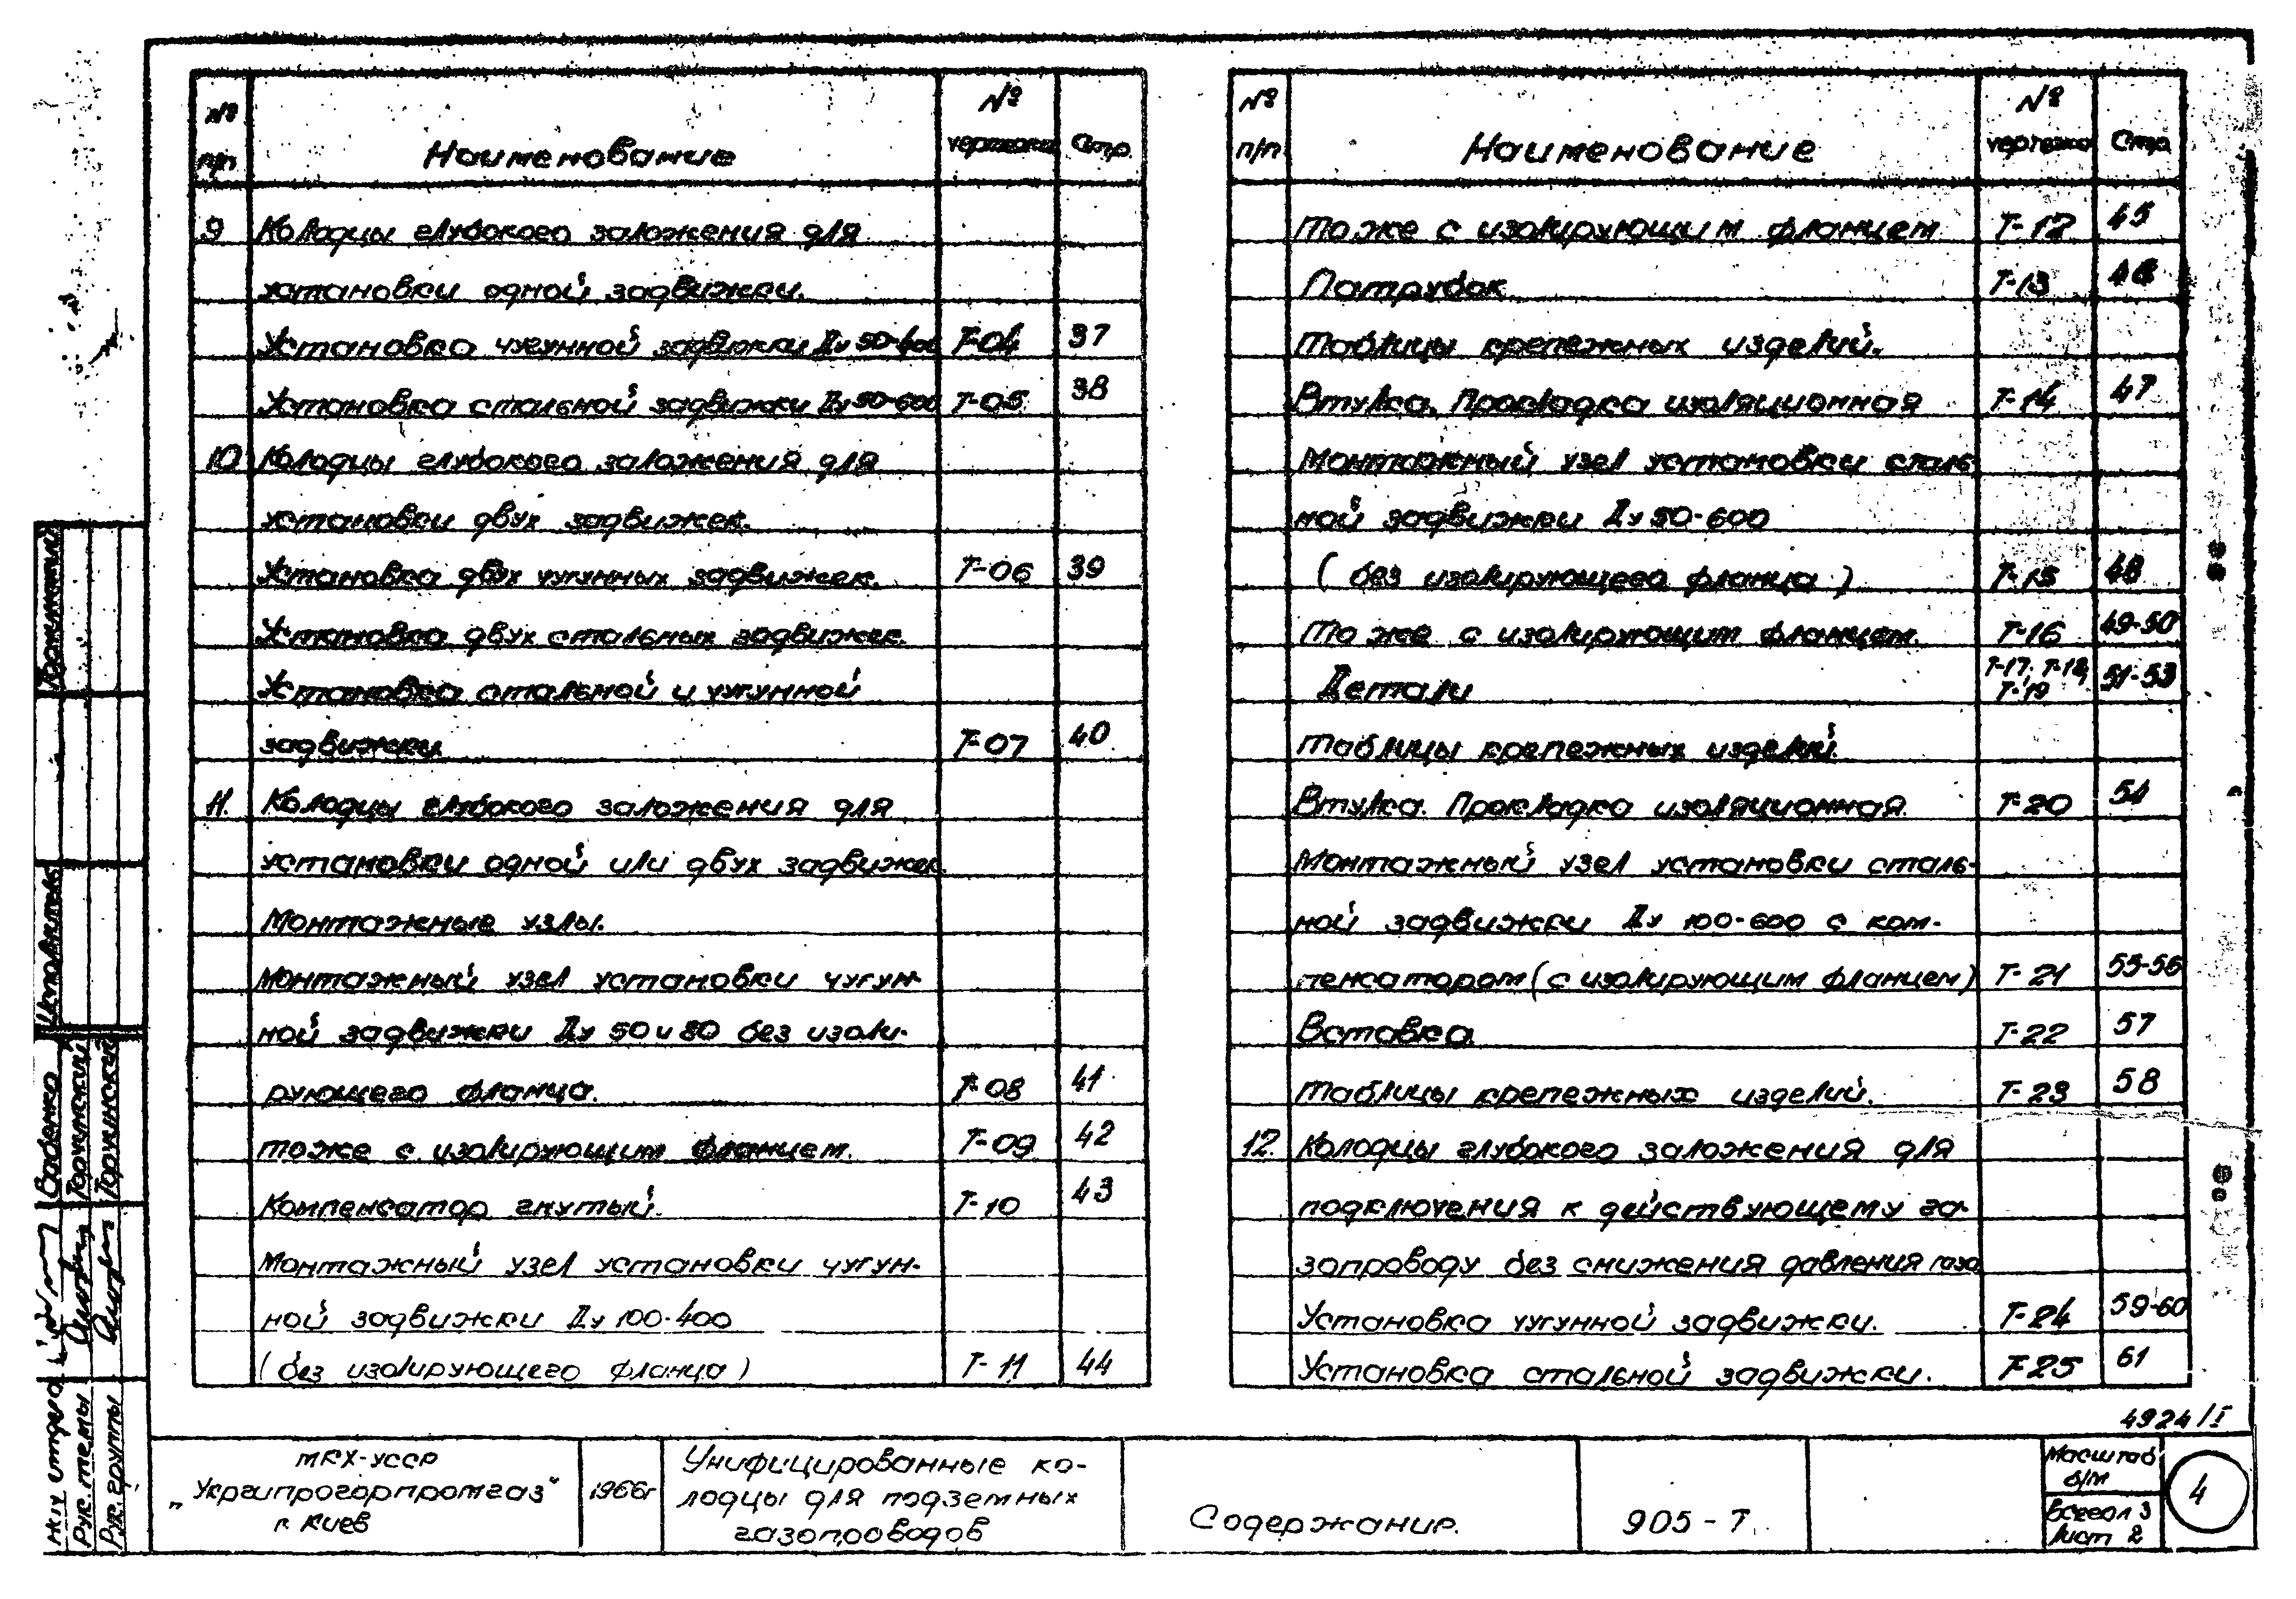 № п/п Наименование № чертежа Стр.
9 Колодцы глубокого заложения для
установки одной задвижки.
Установка чугунной задвижки Ду 50-400 Т-04 37
Установка стальной задвижки Ду 50-600 Т-05 38
10 Колодцы глубокого заложения для
установки двух задвижек.
Установка двух чугунных задвижек. Т-06 39
Установка двух стальных задвижек.
Установка стальной и чугунной
задвижки Т-07 40
11. Колодцы глубокого заложения для
установки одной или двух задвижек
Монтажные узлы.
Монтажный узел установки чугун-
ной задвижки Ду 50 и 80 без изоли-
рующего фланца. Т-08 41
тоже с изолирующим фланцем. Т-09 42
Компенсатор гнутый. Т-10 43
Монтажный узел установки чугун-
ной задвижки Ду 100-400
(без изолирующего фланца) Т-11 44
№ п/п Наименование № чертежа Стр
тоже с изолирующим фланцем Т-12 45
Патрубок Т-13 46
Таблицы крепежных изделий.
Втулка. Прокладка изоляционная Т-14 47
Монтажный узел установки сталь-
ной задвижки Ду 50-600
(без изолирующего фланца) Т-15 48
То же с изолирующим фланцем. Т-16 49-50
Детали Т-17, Т-18, Т-19 51-53
Таблицы крепежных изделий.
Втулка. Прокладка изоляционная. Т-20 54
Монтажный узел установки сталь-
ной задвижки Ду 100-600 с ком-
пенсатором (с изолирующим фланцем) Т-21 55-56
Вставка Т-22 57
Таблицы крепежных изделий. Т-23 58
12. Колодцы глубокого заложения для
подключения к действующему га-
зопроводу без снижения давления газа
Установка чугунной задвижки. Т-24 59-60
Установка стальной задвижки. Т-25 61
4924/I
МКХ-УССР
„Укргипрогорпромгаз"
г. Киев
1966г
Унифицированные ко-
лодцы для подземных
газопроводов
Содержание.
905-Т
Масштаб
б/м
Всегол 3
Лист 2
4
Исполнитель
Бабенко
Торжинский
Торжинский
Рук. темы
Рук. группы